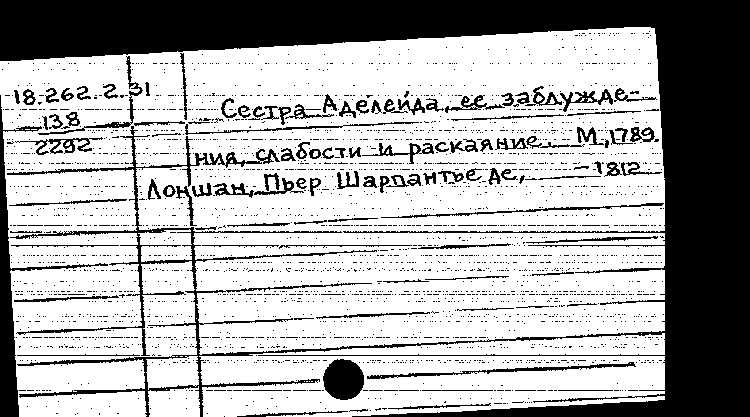 18.262.2.31
138
2292
Сестра Аделеида, ее заблужде-
ния, слабости и раскаяние. М, 1789.
Лоншан, Пьер Шарпантье де, - 1812